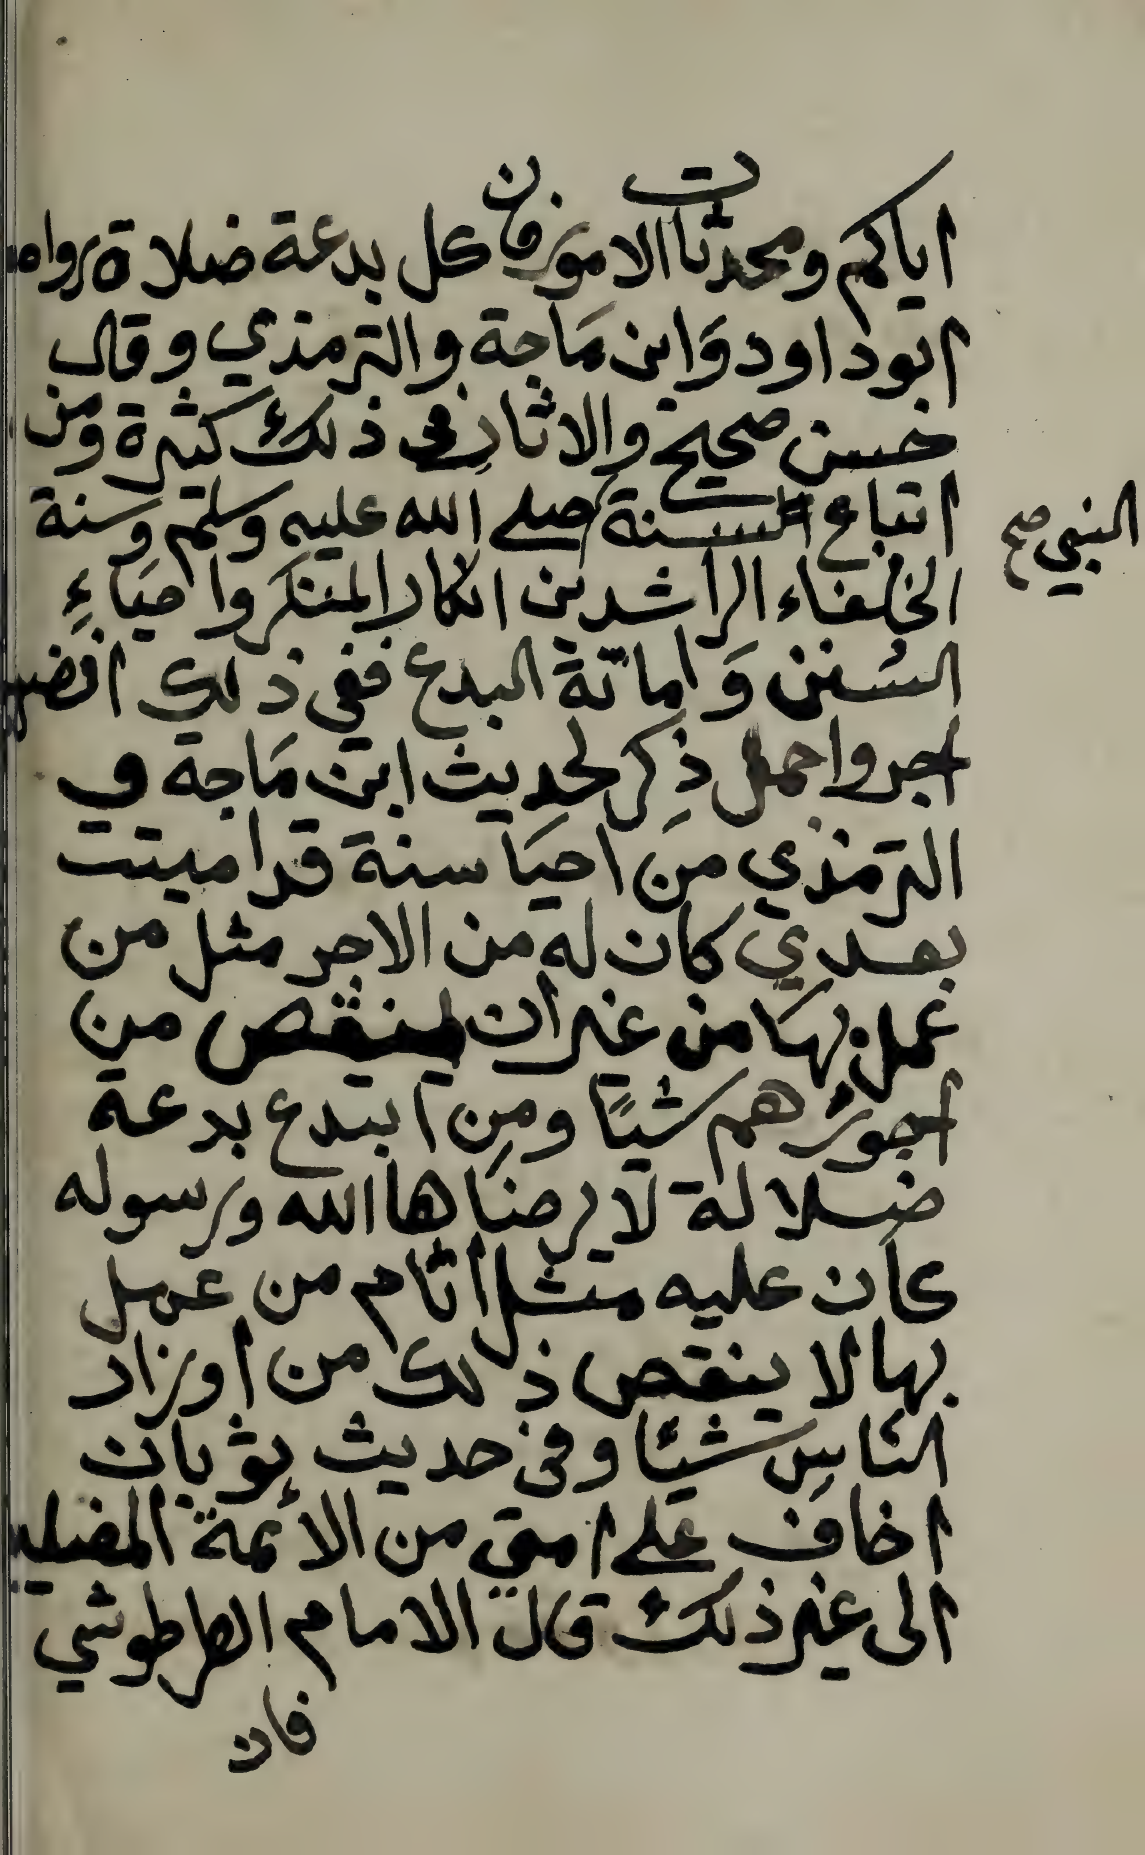 اياكم ومحدثات الامور فان كل بدعة ضلاة رواه
ابوداود وَابن مَاجة والترمذي وقال
حسن صحيح والاثار في ذلك كثيرة ومن
اتباع السنة صلى الله عليه وسلم وسنة
النبي صح
الخلفاء الراشدين انكار المنكر واحيَاءِ
السُنن وَاماتة البدع ففي ذلك افضل
اجر واجمل ذِكر لحديث ابن مَاجة و
الترمذي من احيَا سنة قد اميتت
بعدي كان له من الاجر مثل من
عمل بهَا من غير ان ينقص من
اجورهم شيًا ومِن ابتدع بدعة
ضلالة لَا يرضَاها الله ورسوله
كان عليه مثل اثام من عمل
بها لا ينقص ذلك من اوزار
النَاسِ شيًا وفي حديث ثوبان
اخاف عَلى امتي من الائمة المضلين
الى غير ذلك قال الامام الطرطوشي
فان